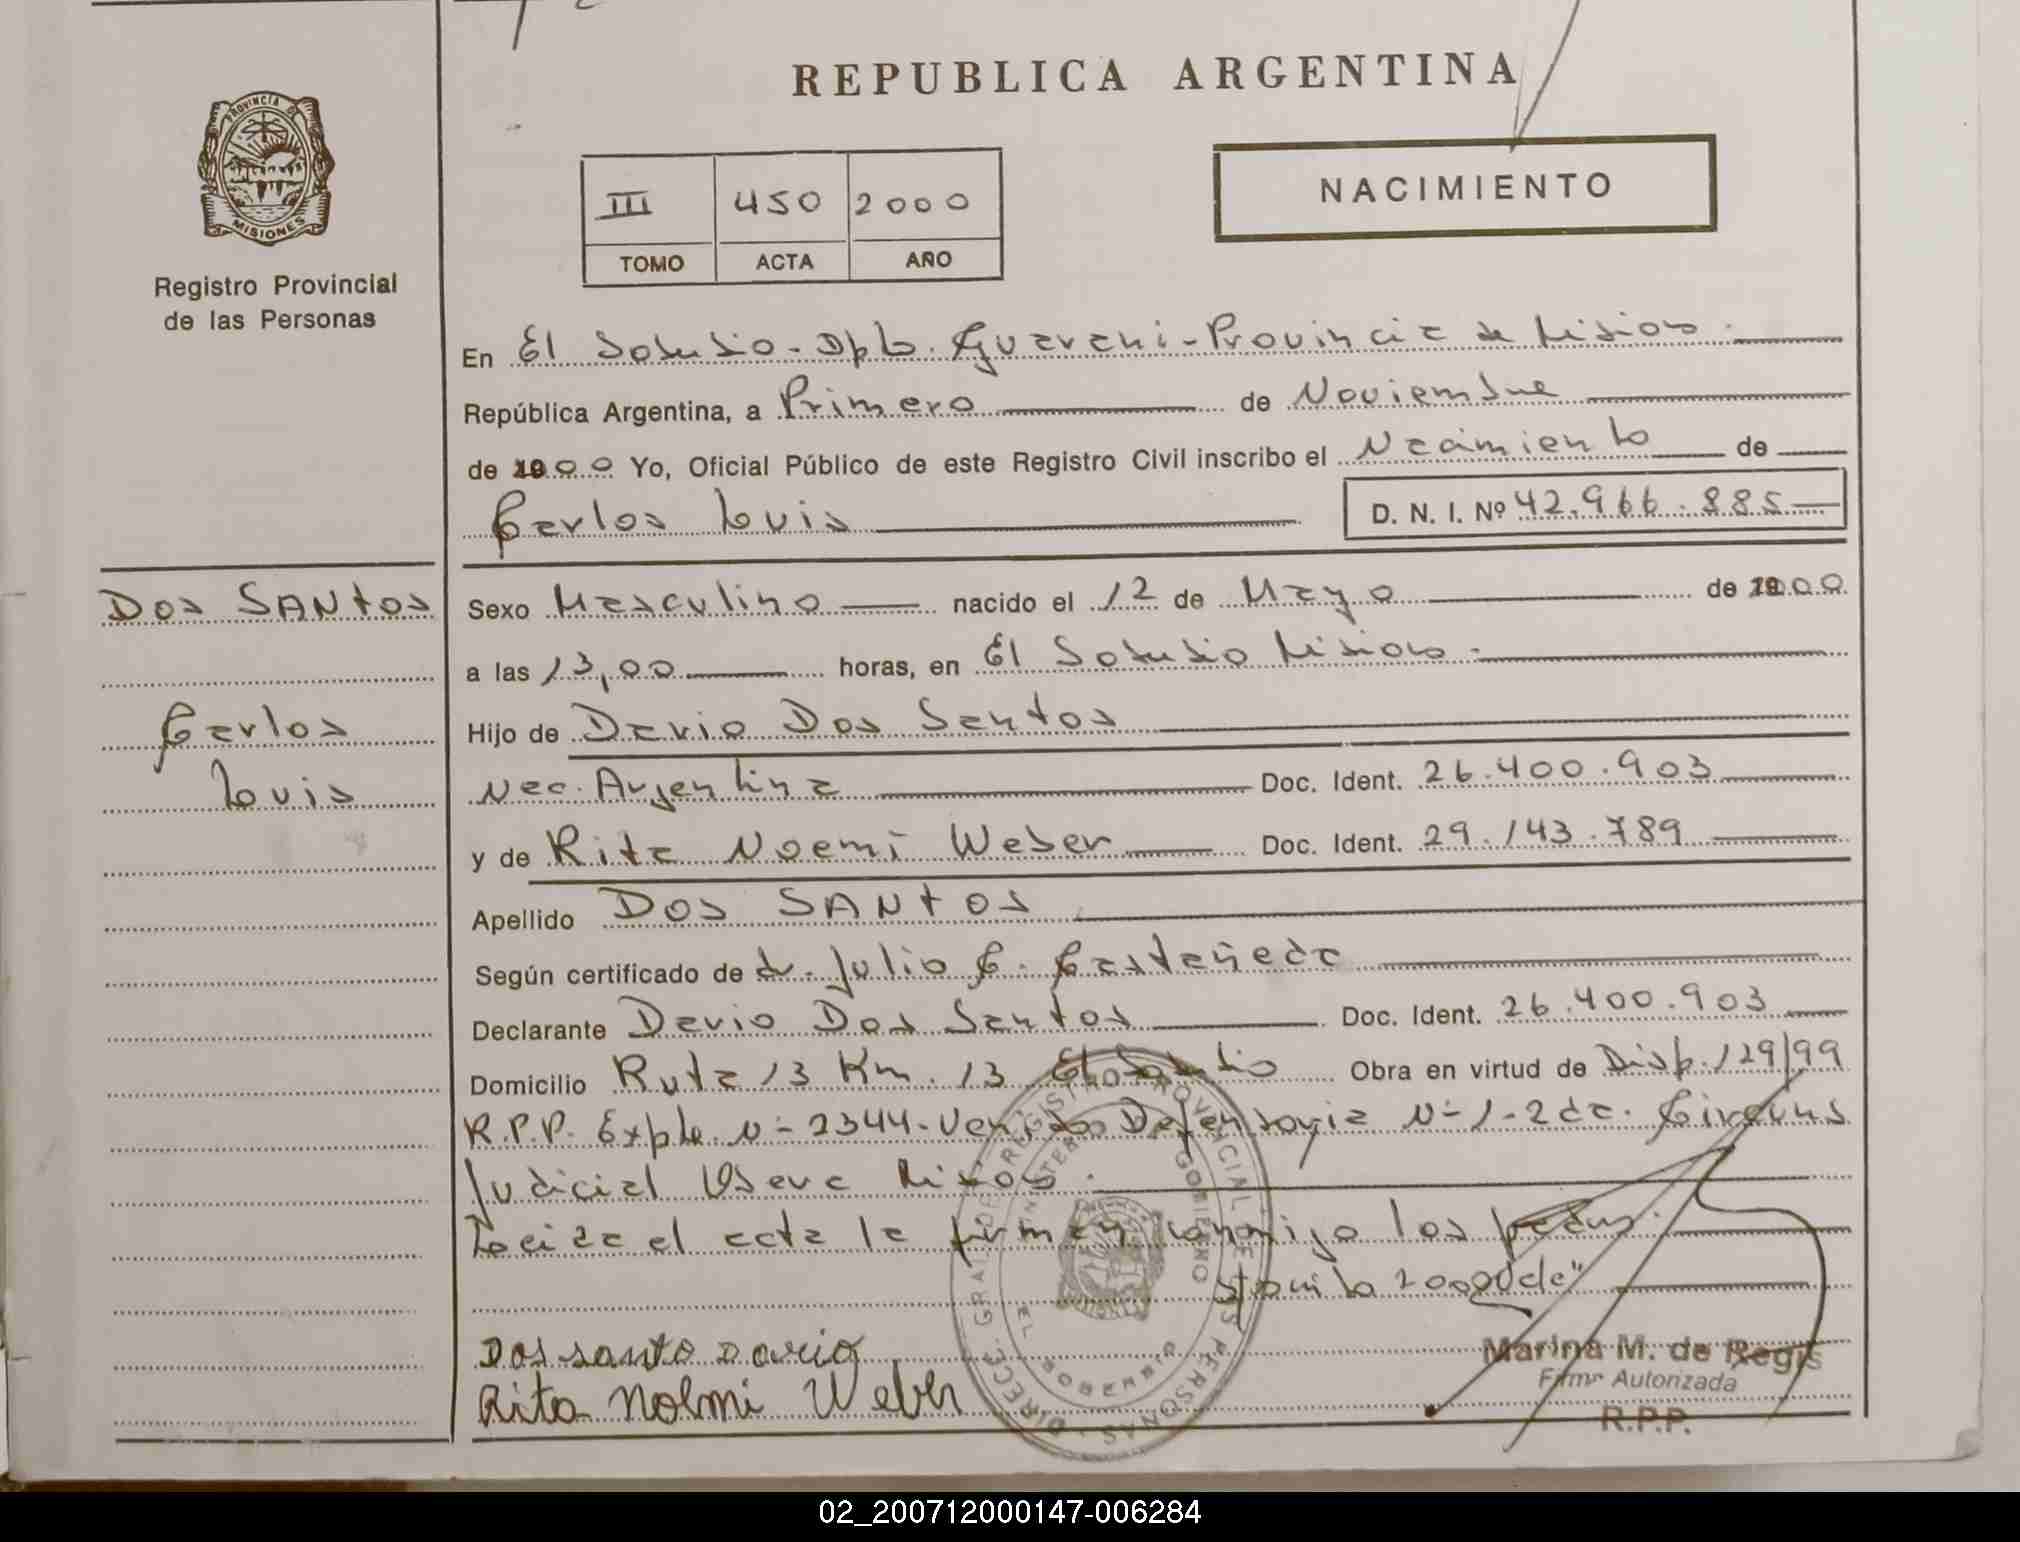 REPUBLICA ARGENTINA
PROVINCIA DE
MISIONES
Registro Provincial
de las Personas
III 450 2000
TOMO ACTA AÑO
NACIMIENTO
En El Soberbio - Dpto. Guarani - Provincia de Misiones
República Argentina, a Primero de Noviembre
de 2000 Yo, Oficial Público de este Registro Civil inscribo el Nacimiento de
Carlos Luis
D. N. I. Nº 42.966.885
DOS SANtOS
Carlos
Luis
Sexo Masculino nacido el 12 de Mayo de 2000
a las 13,00 horas, en El Soberbio Misiones
Hijo de Dario Dos Santos
Nac. Argentina Doc. Ident. 26.400.903
y de Rita Noemi Weber Doc. Ident. 29.143.789
Apellido DOS SANtOS
Según certificado de dr. Julio C. Castañeda
Declarante Dario Dos Santos Doc. Ident. 26.400.903
Domicilio Ruta 13 Km. 13 El Soberbio Obra en virtud de Disp. 129/99
R.P.P. Expte. Nº 2344. Defensoria Nº 1-2da. Circuns
Judicial Obera Misiones.
Leida el acta la firman conmigo los padres.
2000
Dos santo Dario
Rita Nolmi Weber
DIRECC. GRAL DE REGISTRO PROVINCIAL DE LAS PERSONAS
MINISTERIO DE GOBIERNO
EL SOBERBIO
Marina M. de Regis
Firma Autorizada
R.P.P.
02_200712000147-006284